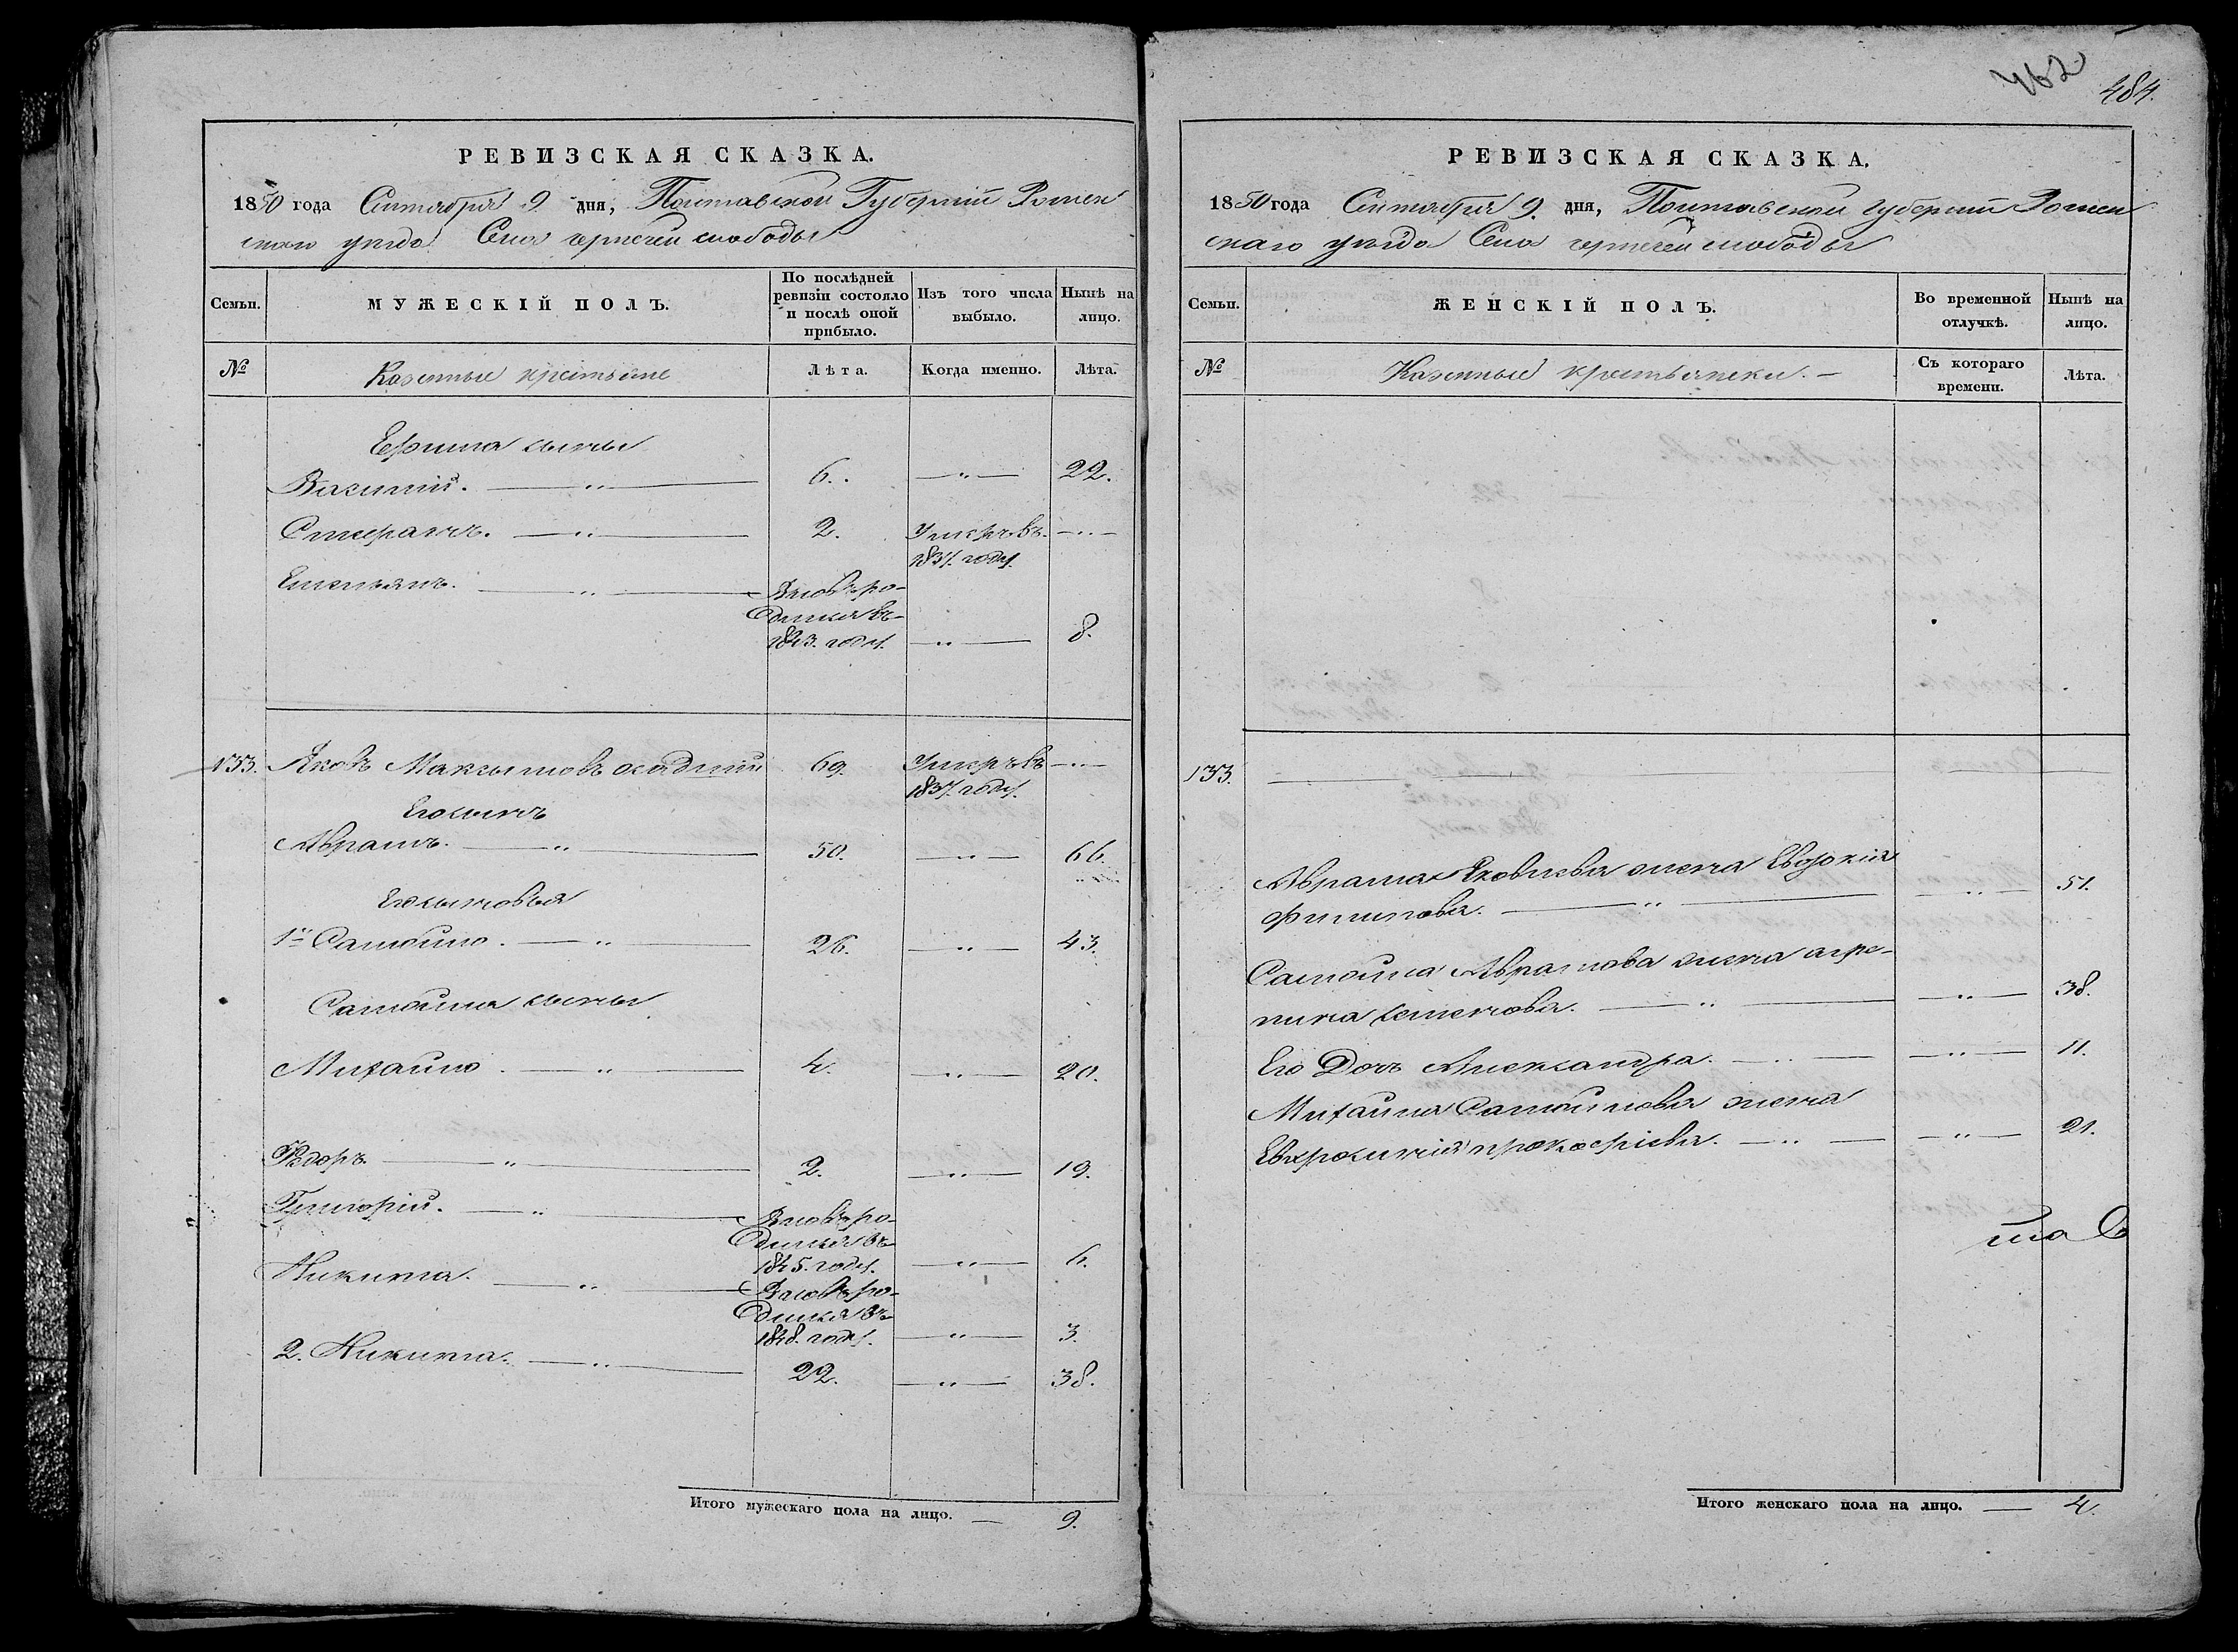 462
484.
РЕВИЗСКАЯ СКАЗКА.
1850 года Сентября 9 дня, Полтавской Губерніи Ромен
скаго уезда Села чернечей слободы
Семьи.
МУЖЕСКІЙ ПОЛЪ.
По послѣдней ревизіи состояло и послѣ оной прибыло.
Изъ того числа выбыло.
Нынѣ на лицо.
№
Казенные крестьяне
Лѣта.
Когда именно.
Лѣта.
Ефима сыны
Василій. — „ — 6. — „ — 22.
Стефанъ. — „ — 2. Умеръ въ — „ —
1837. году.
Емельянъ. — „ — Вновь ро-
дился въ
1843. году. — „ — 8.
133. Яковъ Максимовъ 69. Умеръ въ — „ —
1837. году.
Его сынъ
Абрамъ. — „ — 50. — „ — 66.
Его сыновья
1й Самойло. — „ — 26. — „ — 43.
Самойла сыны
Михайло. — „ — 4. — „ — 20.
Федоръ. — „ — 2. — „ — 19.
Григорій. — „ — Вновь ро-
дился въ
1845. году. — „ — 6.
Никита. — „ — Вновь ро-
дился въ
1848. году. — „ — 3.
2. Никита. — „ — 22. — „ — 38.
Итого мужескаго пола на лицо. — 9.
РЕВИЗСКАЯ СКАЗКА.
1850 года Сентября 9. дня, Полтавской губерніи Ромен
скаго уезда Села чернечей слободы
Семьи.
ЖЕНСКІЙ ПОЛЪ.
Во временной отлучкѣ.
Нынѣ на лицо.
№
Казенные крестьянки. —
Съ котораго времени.
Лѣта.
133.
Абрама Яковлева жена Евдокія
филипова. — „ — — „ — 51.
Самойла Абрамова жена агре-
пина семенова. — „ — — „ — 38.
Его Дочь Александра. — „ — — „ — 11.
Михайла Самойлова жена
Евфросинія прокофіева. — „ — — „ — 21.
Итого женскаго пола на лицо. — 4.